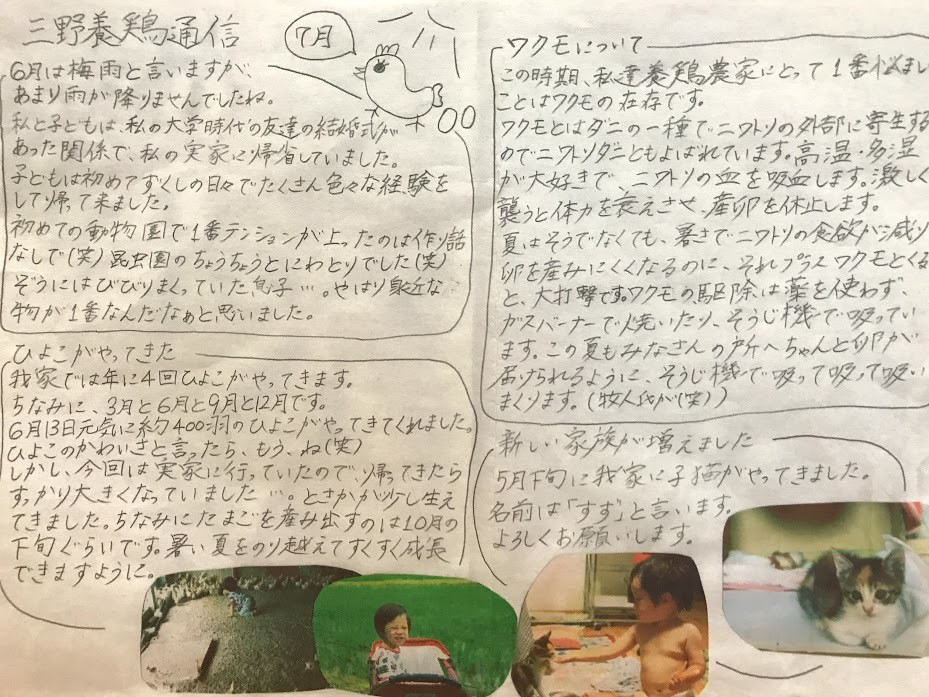 三野養鶏通信
7月
6月は梅雨と言いますが、
あまり雨が降りませんでしたね。
私と子どもは、私の大学時代の友達の結婚式が
あった関係で、私の実家に帰省していました。
子どもは初めてずくしの日々でたくさん色々な経験を
して帰って来ました。
初めての動物園で1番テンションが上ったのは作り話
なしで(笑)昆虫園のちょうちょうとにわとりでした(笑)
ぞうにはびびりまくっていた息子…。やはり身近な
物が1番なんだなぁと思いました。
ひよこがやってきた
我家では年に4回ひよこがやってきます。
ちなみに、3月と6月と9月と12月です。
6月13日元気に約400羽のひよこがやってきてくれました。
ひよこのかわいさと言ったら、もう、ね(笑)
しかし、今回は実家に行っていたので、帰ってきたら
すっかり大きくなっていました…。とさかが少し生え
てきました。ちなみにたまごを産み出すのは10月の
下旬ぐらいです。暑い夏をのり越えてすくすく成長
できますように。
ワクモについて
この時期、私達養鶏農家にとって1番悩まし
ことはワクモの在存です。
ワクモとはダニの一種でニワトリの外部に寄生する
のでニワトリダニともよばれています。高温・多湿
が大好きで、ニワトリの血を吸血します。激しく
襲うと体力を衰えさせ、産卵を休止します。
夏はそうでなくても、暑さでニワトリの食欲が減り
卵を産みにくくなるのに、それプラスワクモとくる
と、大打撃です。ワクモの駆除は薬を使わず、
ガスバーナーで焼いたり、そうじ機で吸ってい
ます。この夏もみなさんの所へちゃんと卵が
届けられるように、そうじ機で吸って吸って吸い
まくります。(牧人氏が(笑))
新しい家族が増えました
5月下旬に我家に子猫がやってきました。
名前は「すず」と言います。
よろしくお願いします。